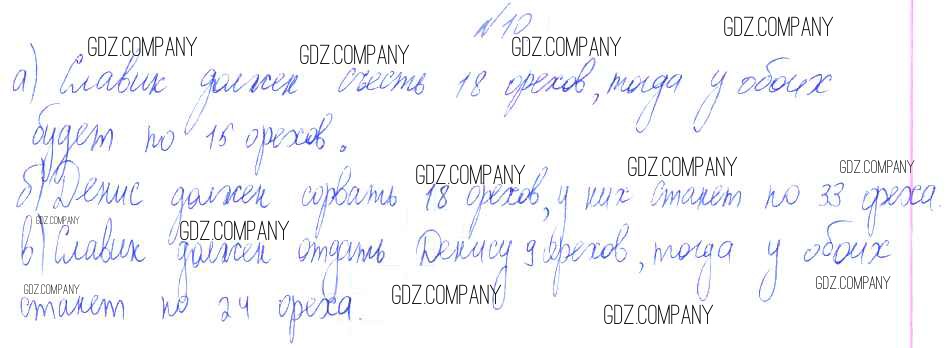 №10
а) Славик должен съесть 18 орехов, тогда у обоих
будет по 15 орехов.
б) Денис должен сорвать 18 орехов, у них станет по 33 ореха.
в) Славик должен отдать Денису 9 орехов, тогда у обоих
станет по 24 ореха.
GDZ.COMPANY
GDZ.COMPANY
GDZ.COMPANY
GDZ.COMPANY
GDZ.COMPANY
GDZ.COMPANY
GDZ.COMPANY
GDZ.COMPANY
GDZ.COMPANY
GDZ.COMPANY
GDZ.COMPANY
GDZ.COMPANY
GDZ.COMPANY